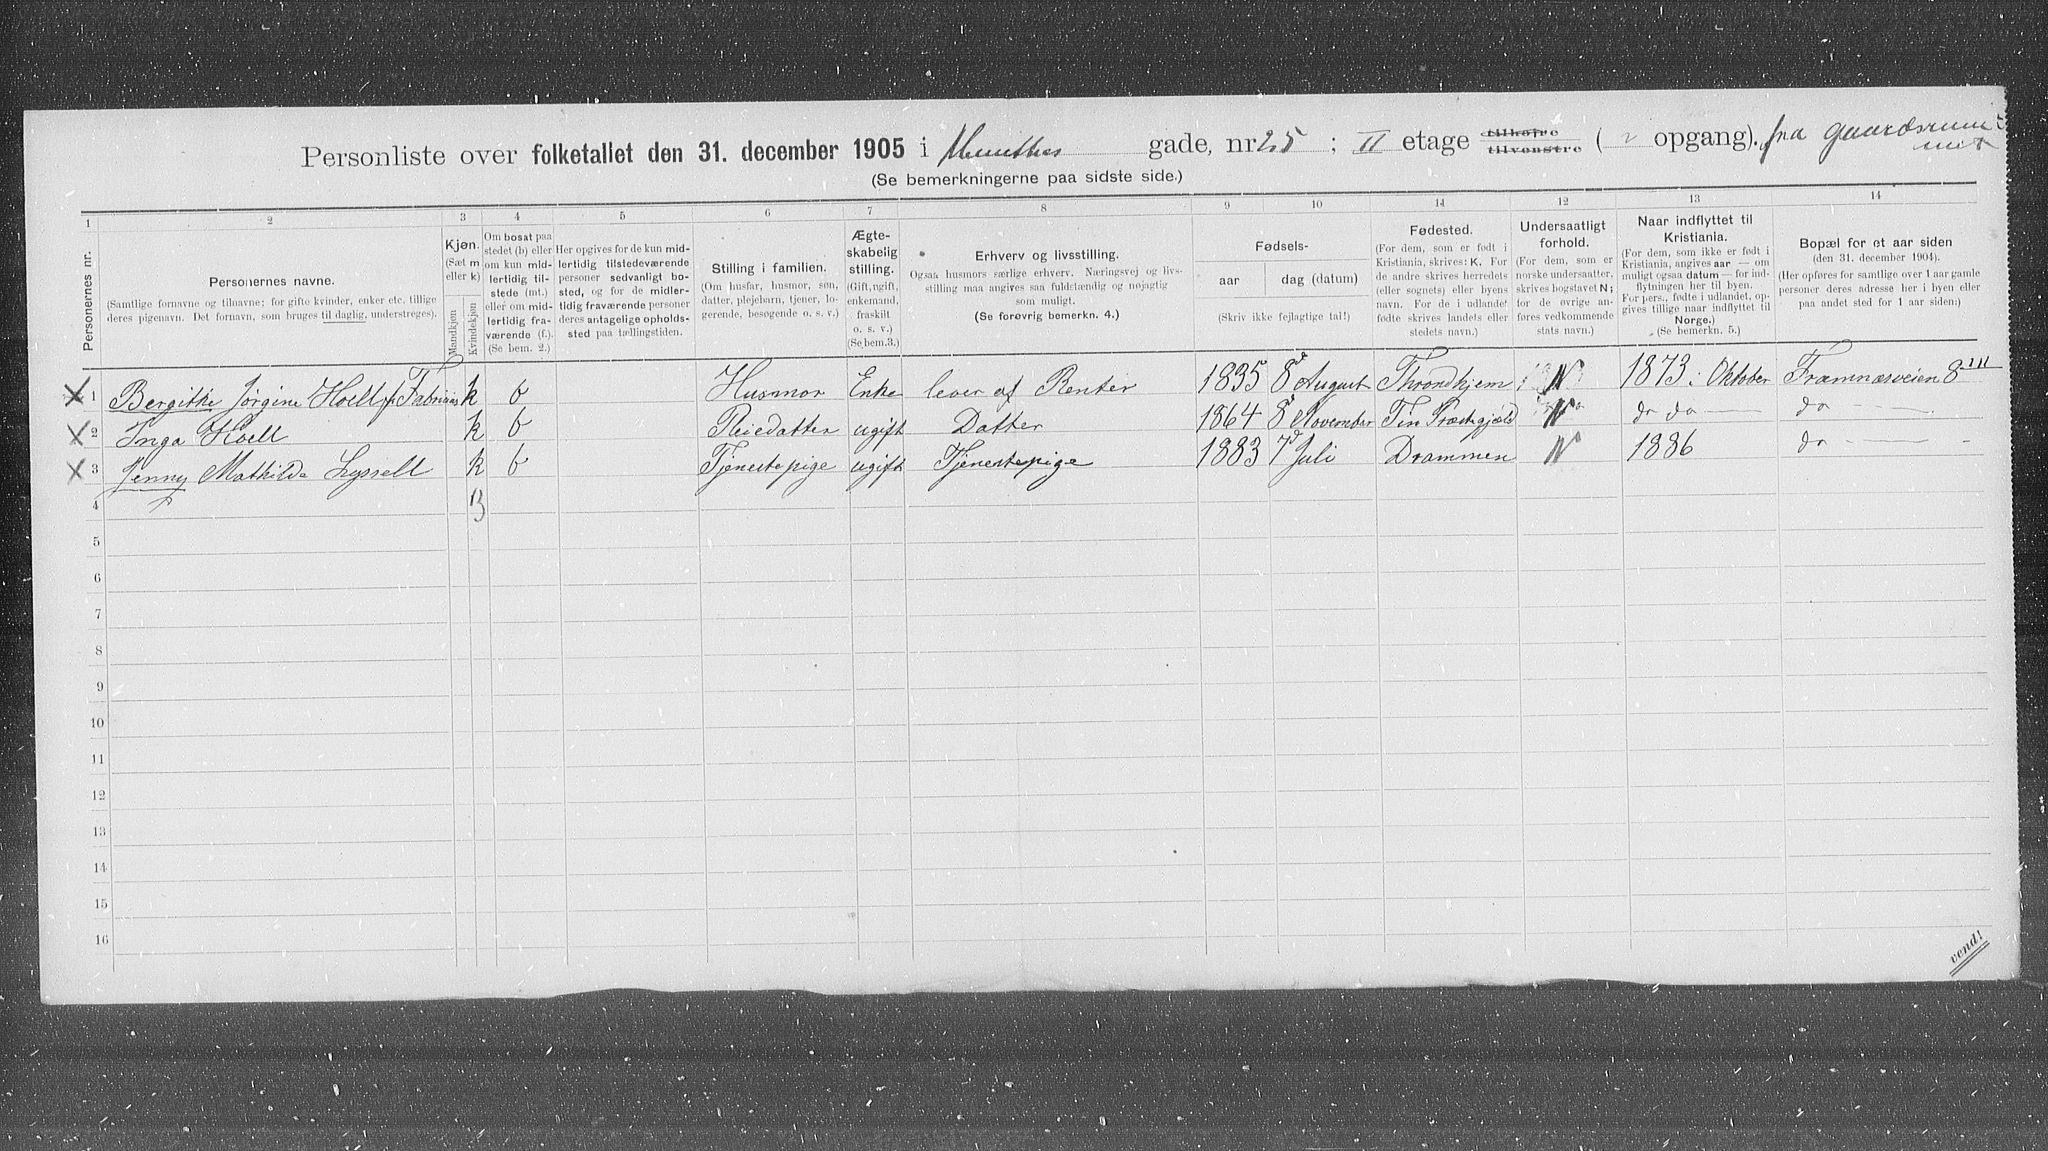 Personliste over folketallet den 31. december 1905 i Munthes gade, nr 25 ; II etage tilhøjre tilvenstre ( opgang). fra gaardsrum
(Se bemerkningerne paa sidste side.)
1 2 3 4 5 6 7 8 9 10 11 12 13 14
Personernes nr.
Personernes navne.
(Samtlige fornavne og tilnavne; for gifte kvinder, enker etc. tillige
deres pigenavn. Det fornavn, som bruges til daglig, understreges).
Kjøn.
(Sæt m
eller k)
Mandkjøn
Kvindekjøn
Om bosat paa
stedet (b) eller
om kun mid-
lertidig til-
stede (mt.)
eller om mid-
lertidig fra-
værende (f.).
(Se bem. 2.)
Her opgives for de kun mid-
lertidig tilstedeværende
personer sedvanligt bo-
sted, og for de midler-
tidig fraværende personer
deres antagelige opholds-
sted paa tællingstiden.
Stilling i familien.
(Om husfar, husmor, søn,
datter, plejebarn, tjener, lo-
gerende, besøgende o. s. v.)
Ægte-
skabelig
stilling.
(Gift, ugift,
enkemand,
fraskilt
o. s. v.)
(Se bem.3.)
Erhverv og livsstilling.
Ogsaa husmors særlige erhverv. Næringsvej og livs-
stilling maa angives saa fuldstændig og nøjagtig
som muligt.
(Se forøvrig bemerkn. 4.)
Fødsels-
aar dag (datum)
(Skriv ikke fejlagtige tal!)
Fødested.
(For dem, som er født i
Kristiania, skrives: K. For
de andre skrives herredets
(eller sognets) eller byens
navn. For de i udlandet
fødte skrives landets eller
stedets navn.)
Undersaatligt
forhold.
(For dem, som er
norske undersaatter,
skrives bogstavet N;
for de øvrige an-
føres vedkommende
stats navn.)
Naar indflyttet til
Kristiania.
(For dem, som ikke er født i
Kristiania, angives aar — om
muligt ogsaa datum — for ind-
flytningen her til byen.
For pers., fødte i udlandet, op-
gives tillige naar indflyttet til
Norge.)
(Se bemerkn. 5.)
Bopæl for et aar siden
(den 31. december 1904).
(Her opføres for samtlige over 1 aar gamle
personer deres adresse her i byen eller
paa andet sted for 1 aar siden;)
1 Bergitke Jørgine Hoell f. Fabrizius k b Husmor Enke lever af Renter 1835 8de August Throndhjem N 1873 i Oktober Framnæsveien 8 III
2 Inga Hoell k b Pleiedatter ugift Datter 1864 8 November Tin Præstegjæld N do do — do — —
3 Jenny Mathilde Lyssell k b Tjenestepige ugift Tjenestepige 1883 7de Juli Drammen N 1886 do — — —
4 3
5
6
7
8
9
10
11
12
13
14
15
16
vend!